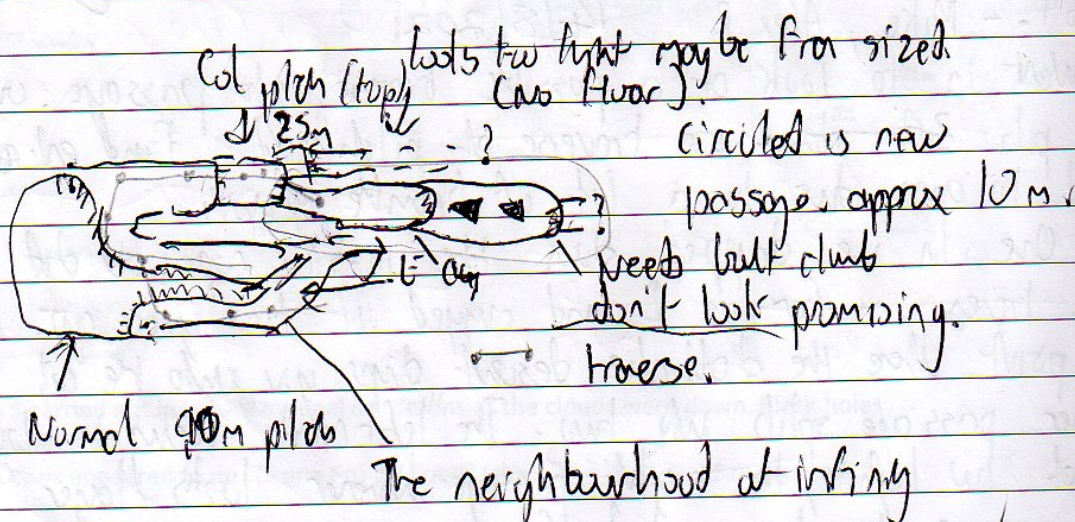 looks too tight maybe Fran sized.
Col pitch (top)
(No Huar)?
25m
?
circiled is new
passage. approx 10m.
?
Needs bolt climb
don't look promising.
traverse.
Normal 90m pitch
The neighbourhood of infinity